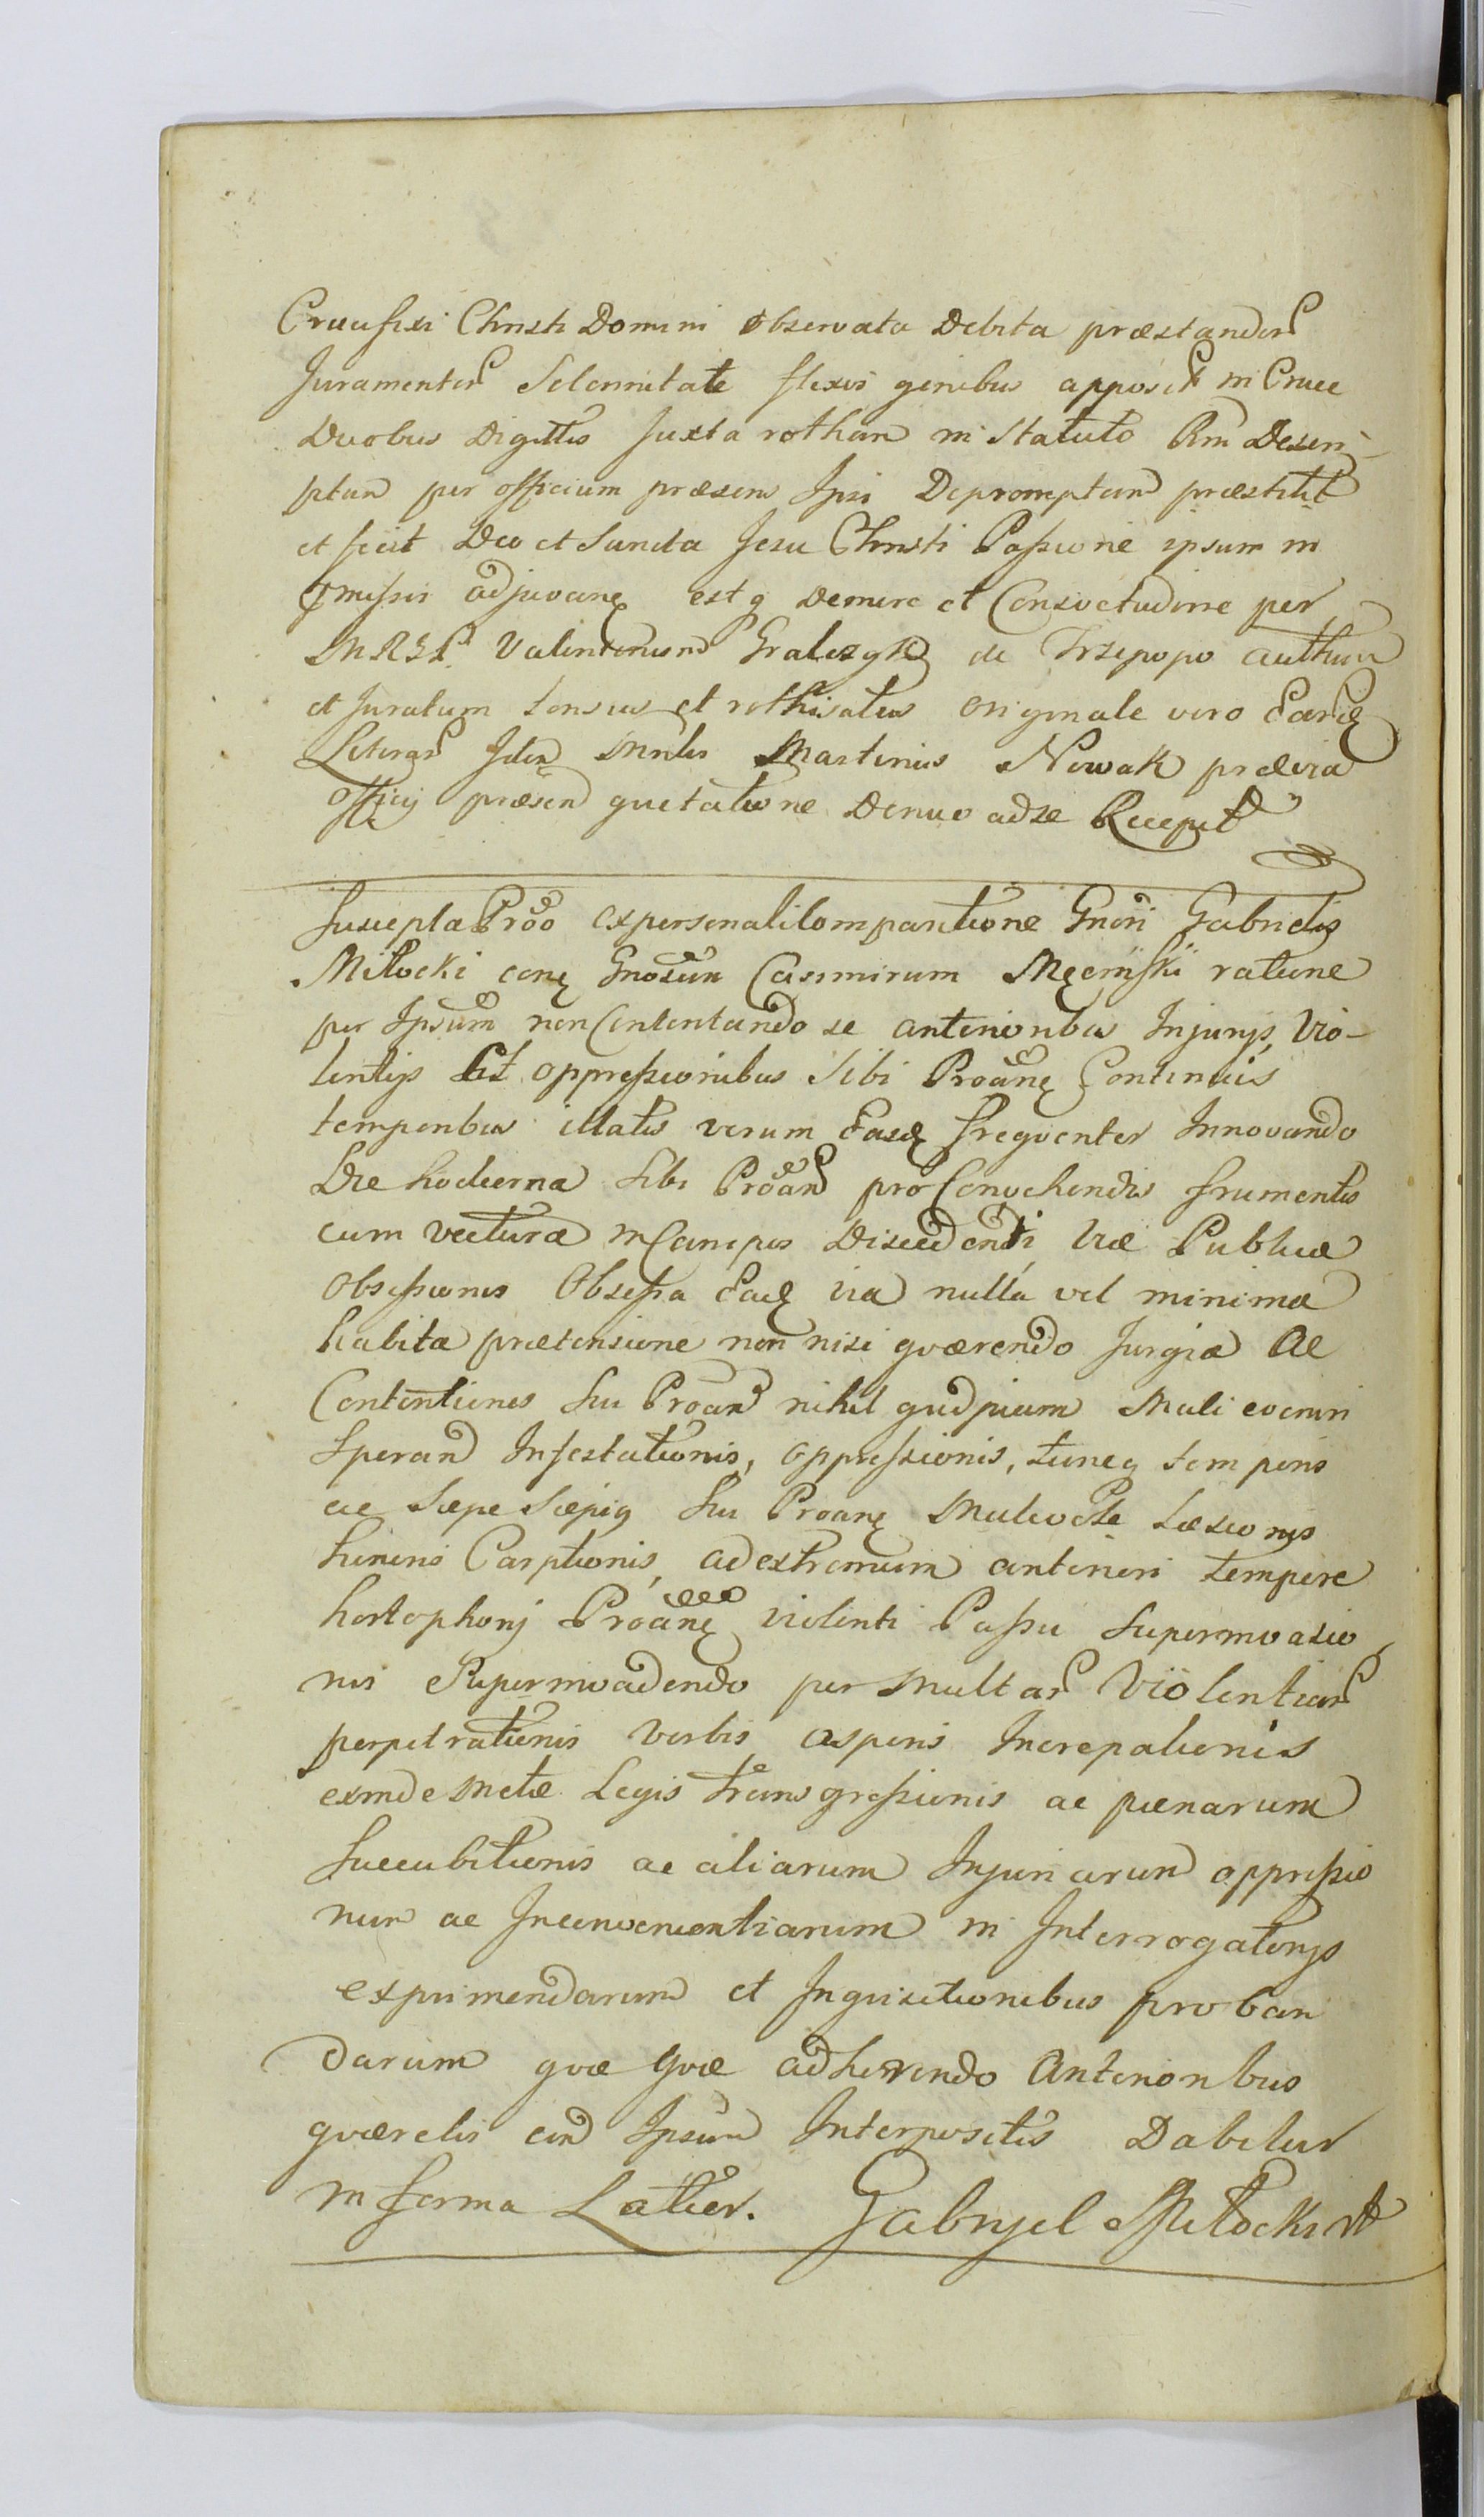 Crucifixi Christi Domini observata Debita præstandor
Juramentor Solennitate flexis genibus apposit in Cruce
Duobus Digittis Juxta rotham in Statuto Rni Descri-
ptam per officium præsens Ipsi Depromptam præstitit
et fecit Deo et Sancta Jesu Christi Passione ipsum in
præmissis adjuvan estq de more et Consvetudine per
Valentinum Gralczyk de Trzepopo authum
et Juratum et rothisatus originale vero Earund
Literar Idem Mnlis Martinus Nowak prævia
officij præsen quietatione Denuo ad se Recepit
Suscepta Proo ex personali Comparitione Gnosi Gabrielis
Miłocki con Gnosum Casimirum Męcinski ratione
per Ipsum non Contentando se anterioribus Injurijs, Vio-
lentijs Et oppressionibus Sibi Proane Continuis
temporibus illatis verum Easd freqventer Innovando
Die hodierna Sibi Proan pro Convehendis frumentis
cum vectura in Campos Discedenti Viæ Publicæ
obsessionis Obsessa Ead via nulla vel minima
habita prætensione non nisi qværendo Jurgia ac
Contentiones Sui Proan nihil quidpiam Mali eveniri
Speran Infestationis, oppressionis, tuncq temporis
ac Sæpe Sæpiq Sui Proane Læsionis
Carptionis, ad extremum anteriori tempore
Proane violenti Passu Superinvasio
nis Superinvadendo per Multar Violentiar
perpetrationis verbis asperis Increpationis
exinde Metæ Legis transgressionis ac pænarum
Succubitionis ac aliarum Injuriarum oppressio
num ac Inconvenientiarum in Interrogatorijs
exprimendarum et Inqvisitionibus proban
darum qvæ qvæ adhærendo Anterioribus
qværelis con Ipsum Interpositis Dabitur
in forma Latior. Gabryel Miłocki